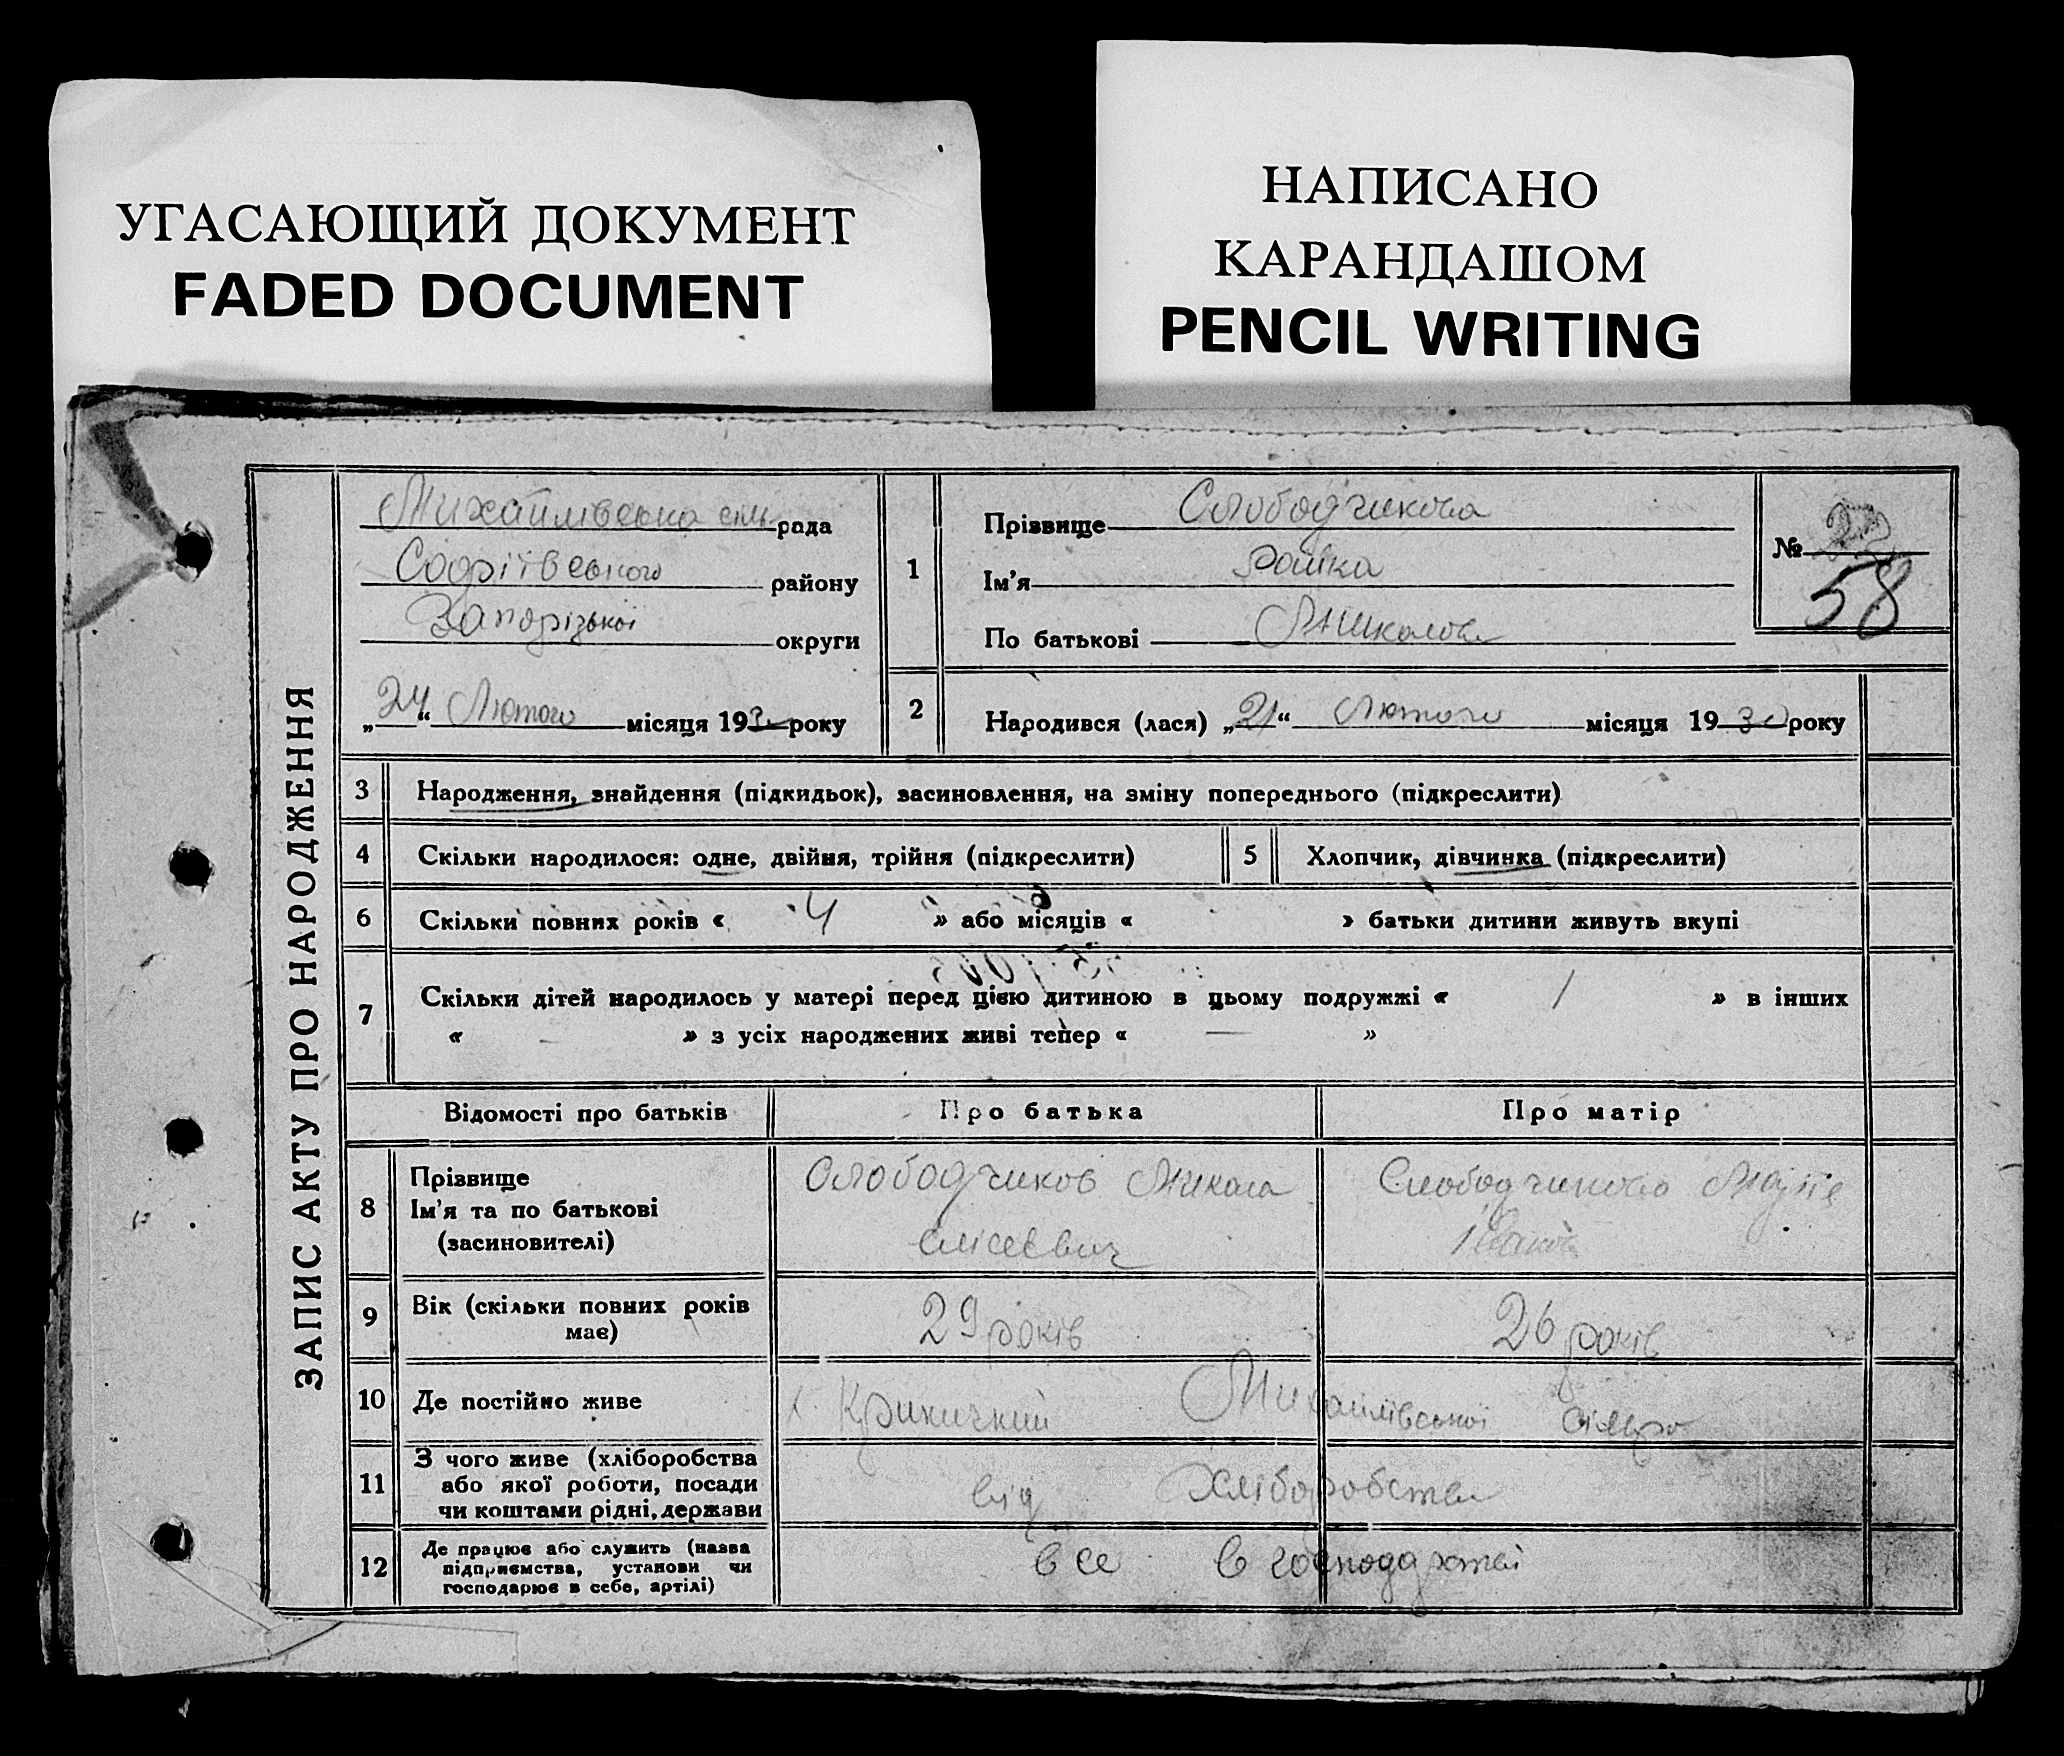 УГАСАЮЩИЙ ДОКУМЕНТ
FADED DOCUMENT
НАПИСАНО
КАРАНДАШОМ
PENCIL WRITING
ЗАПИС АКТУ ПРО НАРОДЖЕННЯ
Михайлівська рада
Софіївського району
Запорізької округи
„24“ Лютого місяця 193 року
1
Прізвище Слободчикова
Ім'я Раїка
По батькові
№
58
2
Народився (лася) „21“ Лютого місяця 1930 року
3 Народження, знайдення (підкидьок), засиновлення, на зміну попереднього (підкреслити)
4 Скільки народилося: одне, двійня, трійня (підкреслити)
5 Хлопчик, дівчинка (підкреслити)
6 Скільки повних років « 4 » або місяців « » батьки дитини живуть вкупі
7 Скільки дітей народилось у матері перед цією дитиною в цьому подружжі « 1 » в інших
« — » з усіх народжених живі тепер « — »
Відомості про батьків Про батька Про матір
8 Прізвище
Ім'я та по батькові
(засиновителі)
Слободчиков Микола
Єлісеєвич
Слободчикова
9 Вік (скільки повних років
має)
29 років
26 років
10 Де постійно живе
х. Криничний Михайлівської
11 З чого живе (хліборобства
або якої роботи, посади
чи коштами рідні, держави
від хліборобства
12 Де працює або служить (назва
підприємства, установи чи
господарює в себе, артілі)
все в господарстві